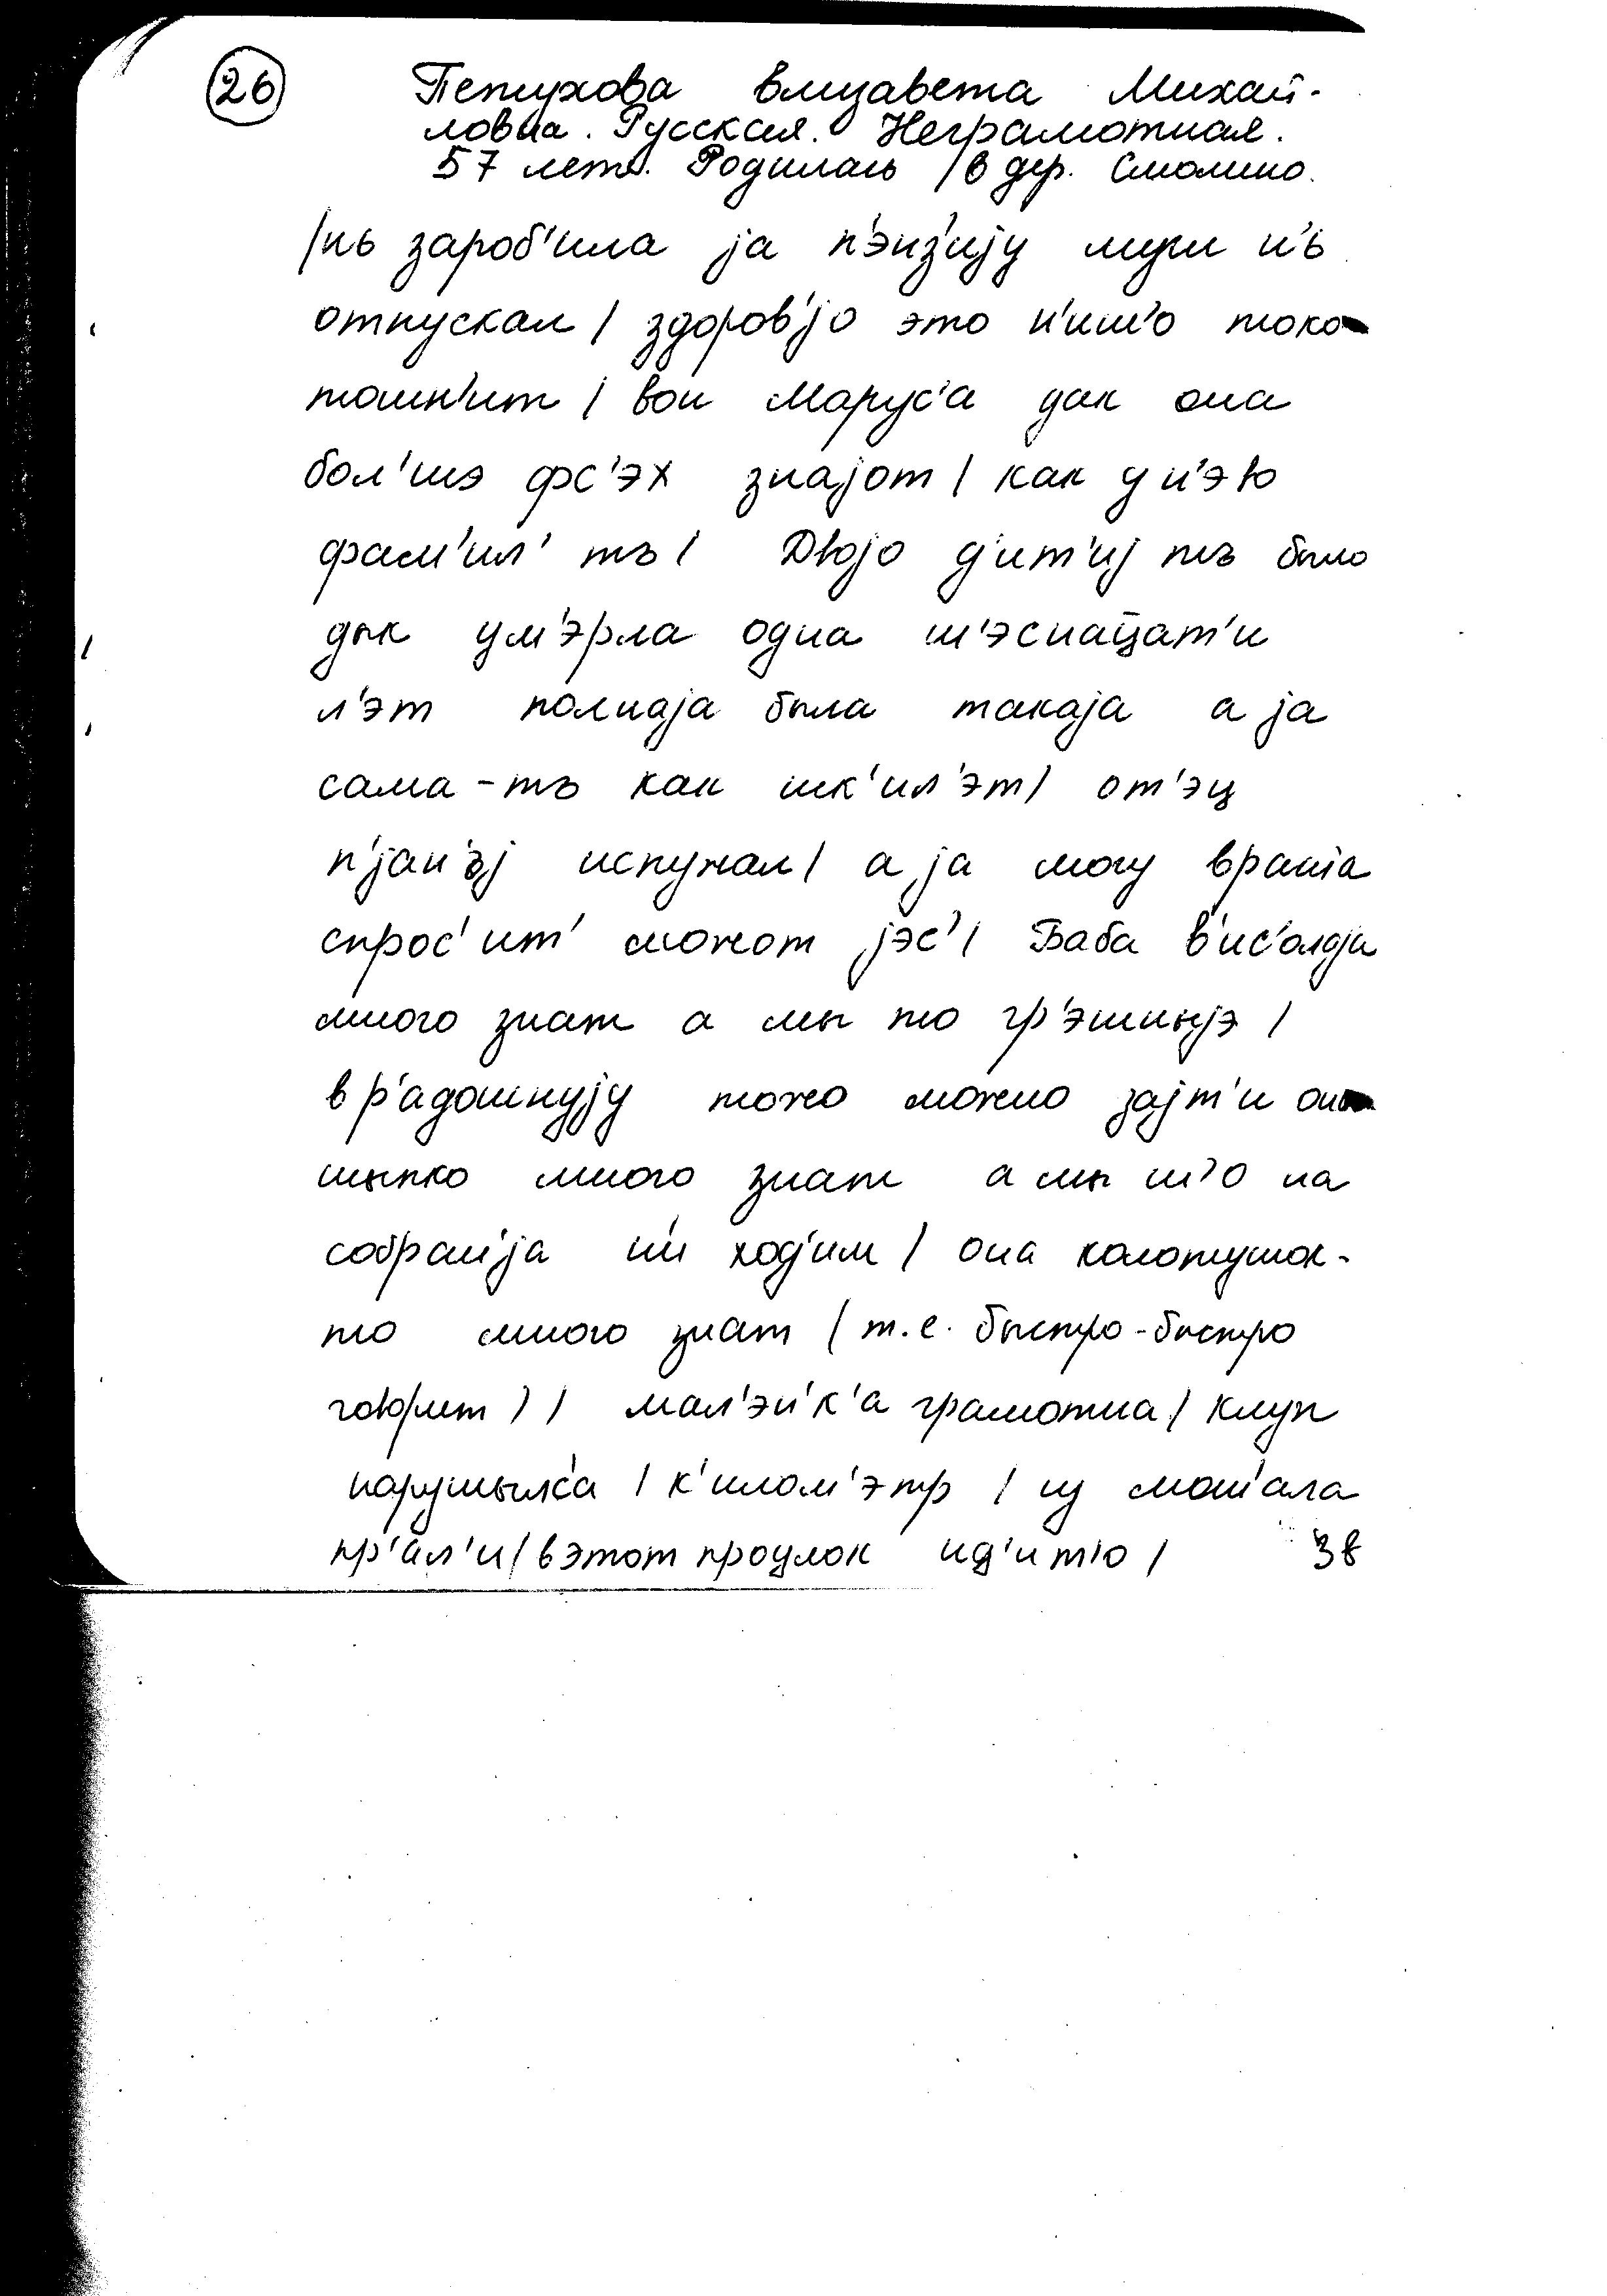 26
Петухова Елизавета Михай-
ловна. Русская. Неграмотная.
57 лет. Родилась /в дер. Смолино.
/нь зароб'ила jа п'энз'иjу муш н'ь
отпускал / здоров'jо это н'иш'о токо
тошн'ит / вон Марус'а дак она
бол'шэ фс'эх знаjот / как у н'эю
фам'ил' тъ / Двоjо д'ит'иj тъ было
дык ум'эрла одна ш'эснац̄ат'и
л'эт полнаjа была такаjа а jа
сама-тъ как шк'ил'эт / от'эц
п'jан'ъj испужал / а jа могу врач'а
спрос'ит' можот jэс' / Баба в'ис'олаjа
много знат а мы то гр'эшныjэ /
в р'адошнуjу тожо можно заjт'и он
шыпко много знат а мы ш'о на
собран'jа н'и ход'им / она колотушок-
то много знат (т.е. быстро-быстро
говорит) / мал'эн'к'а грамотна / клуп
нарушылс'а / к'илом'этр / из моч'ала
пр'ал'и / в этот проулок ид'ит'о /
38